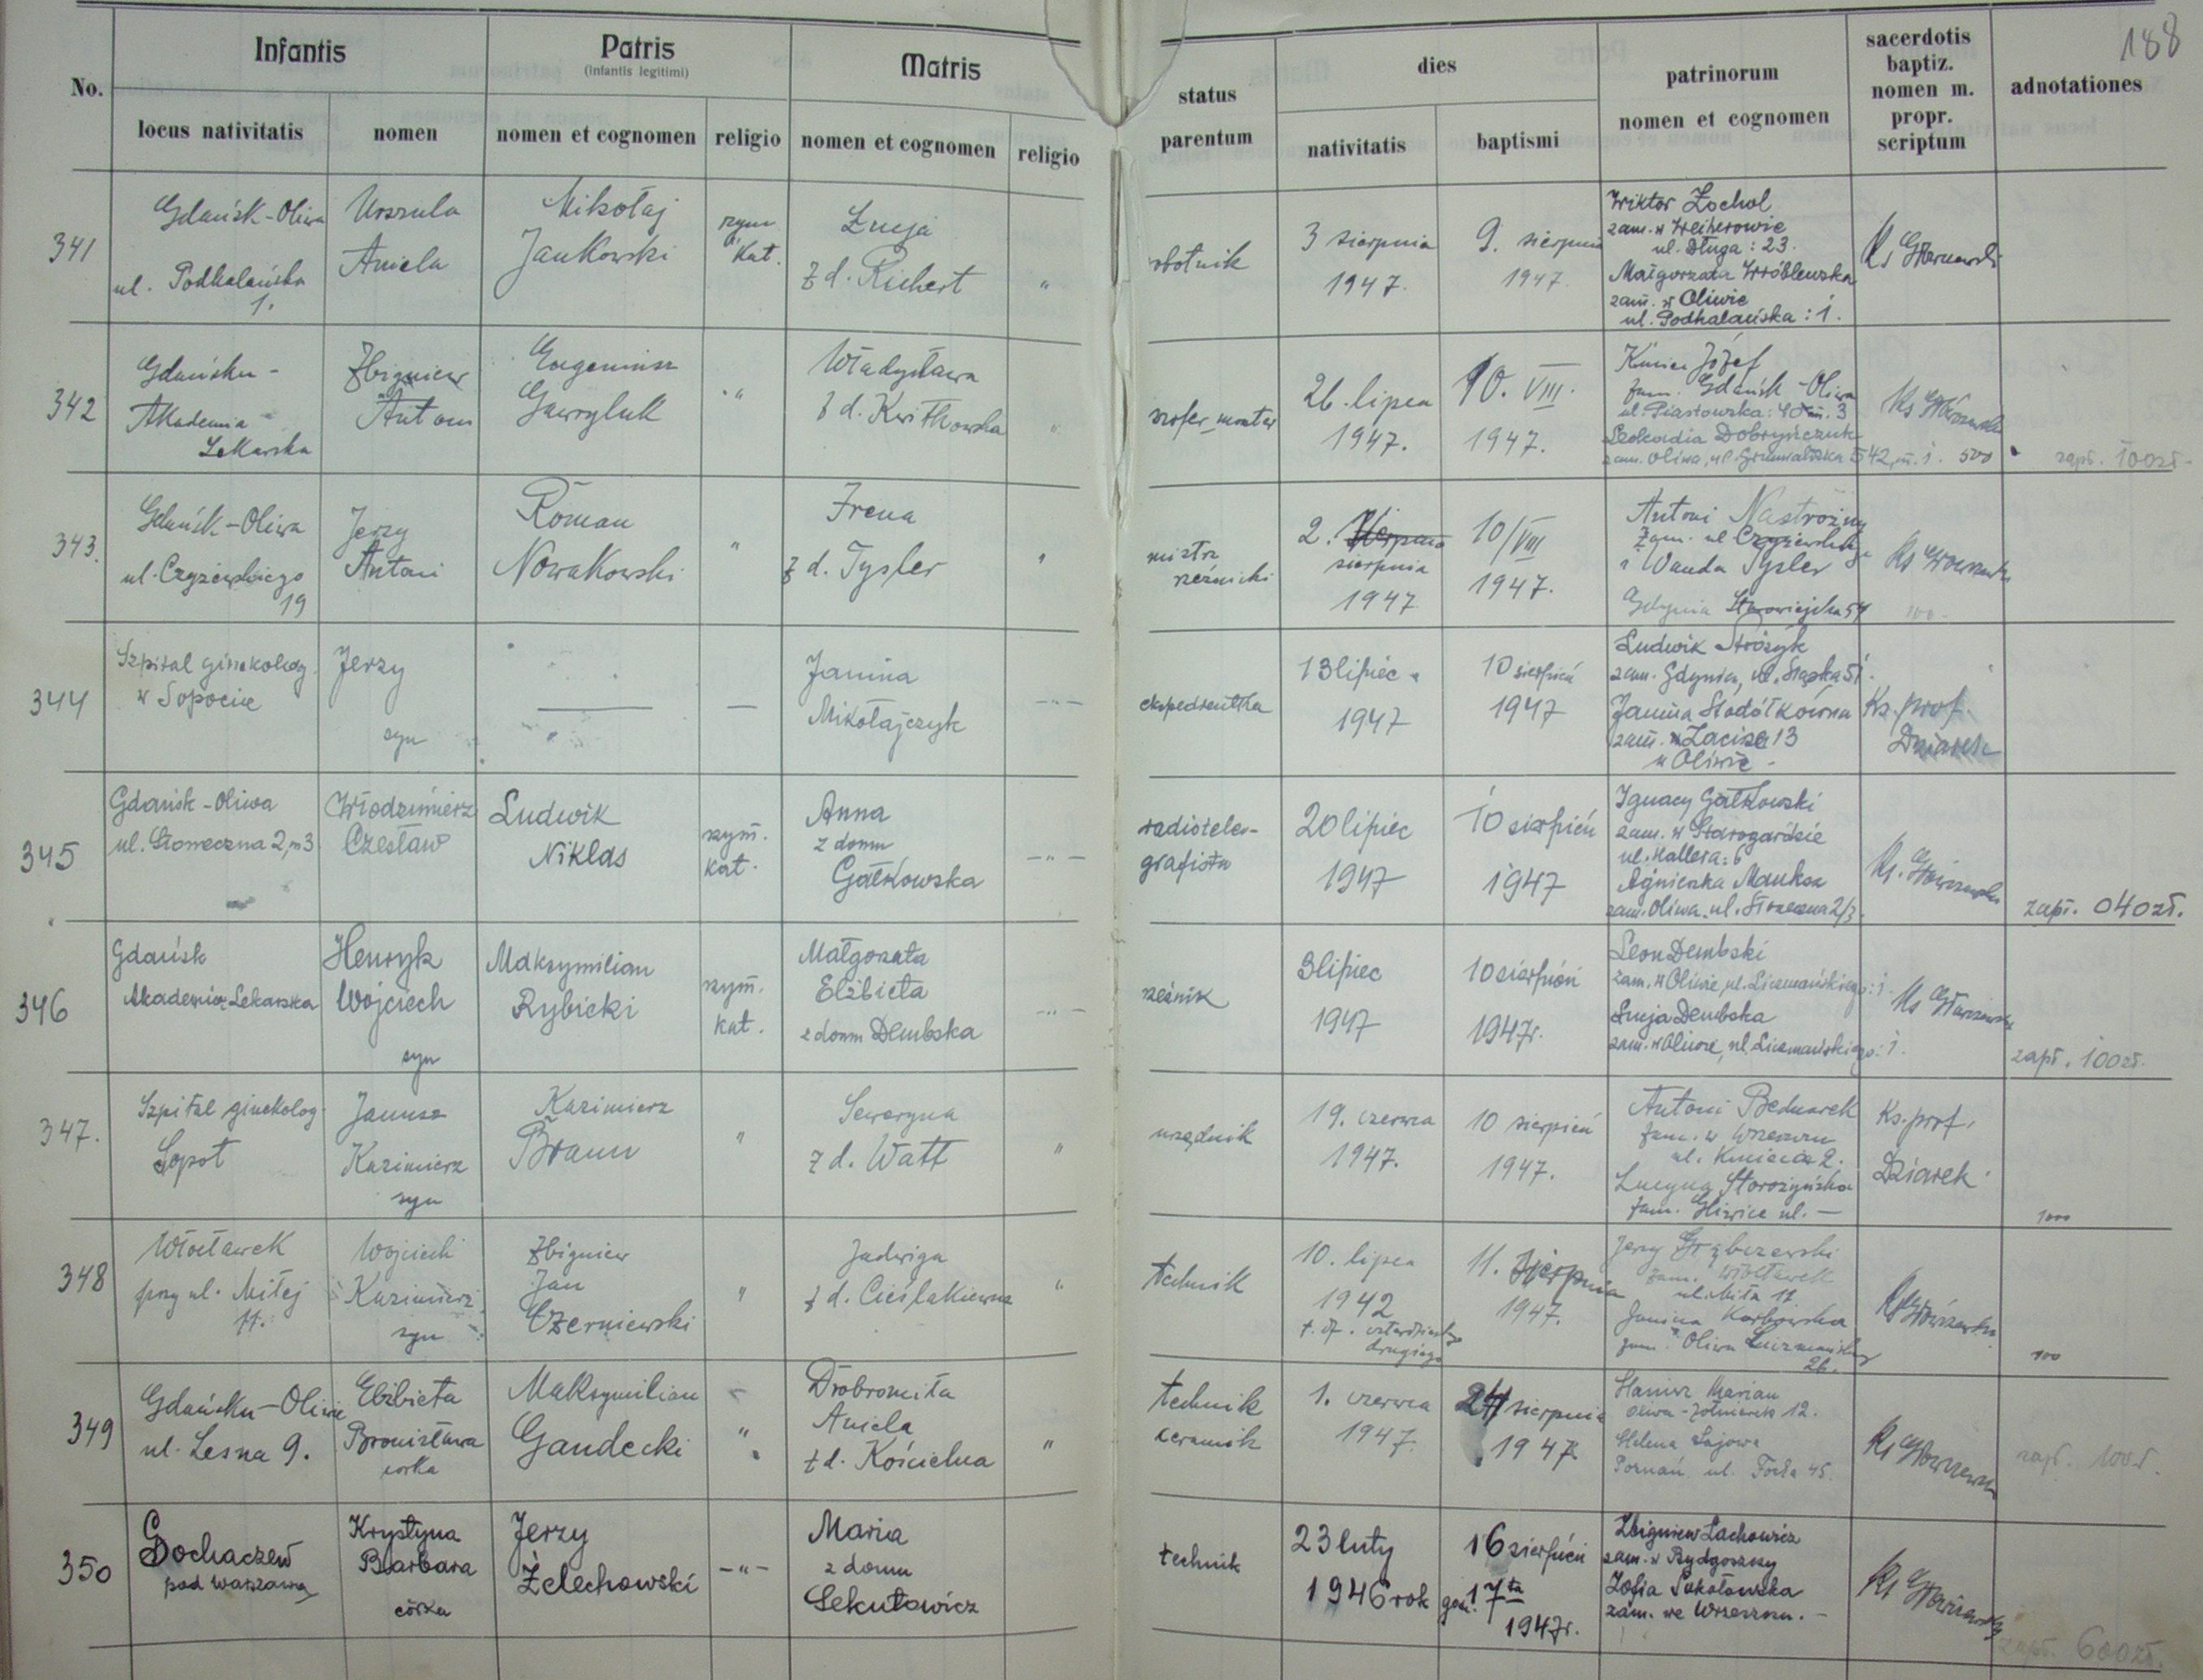 188
No.
Infantis
locus nativitatis
nomen
Patris
(infantis legitimi)
nomen et cognomen
religio
Matris
nomen et cognomen
religio
status
parentum
dies
nativitatis
baptismi
patrinorum
nomen et cognomen
sacerdotis
baptiz.
nomen m.
propr.
scriptum
adnotationes
341
Gdańsk-Oliwa
ul. Podhalańska
1.
Urszula
Aniela
Mikołaj
Jankowski
rzym
kat.
Łucja
z d. Richert
"
robotnik
3 sierpnia
1947.
9. sierpnia
1947.
Wiktor Zochol
zam. w Wejherowie
ul. Długa: 23.
Małgorzata Wróblewska
zam. w Oliwie
ul. Podhalańska: 1.
Ks
342
Gdańsku-
Akademia
Lekarska
Zbigniew
Antoni
Eugeniusz
Gawryluk
"
Władysława
z d. Kwitkowska
"
szofer_monter
26. lipca
1947.
10. VIII.
1947.
Józef
zam. Gdańsk-Oliwa
ul. Piastowska: 40 m. 3
Leokadia Dobryńczuk
zam. Oliwa, ul. Grunwaldzka 542, m. 1. 500
Ks
zapł. 100zł-
343.
Gdańsk-Oliwa
ul. Czyżewskiego
19
Jerzy
Antoni
Roman
Nowakowski
"
Irena
z d. Tysler
"
mistrz
rzeźnicki
2. sierpnia
1947
10/VIII
1947.
Antoni Nastrożny
zam. ul Czyżewskiego
i Wanda Tysler
Gdynia Starowiejska 54
Ks
100-
344
Szpital ginekolog.
w Sopocie
Jerzy
syn
—
—
Janina
Mikołajczyk
-"-
ekspedientka
13 lipiec
1947
10 sierpień
1947
Ludwik Stróżyk
zam. Gdynia, ul. Śląska 51.
Janina Słodółkówna
zam. w Zacisze 13
w Oliwie-
Ks. prof.
Dziarek
345
Gdańsk-Oliwa
ul. Słoneczna 2, m 3
Włodzimierz
Czesław
Ludwik
Niklas
rzym.
kat.
Anna
z domu
Gałkowska
-"-
radiotele-
grafista
20 lipiec
1947
10 sierpień
1947
Ignacy Gałkowski
zam. w Starogardzie
ul. Hallera: 6
Agnieszka Mauksz
zam. Oliwa, ul. Słoneczna 2/3.
Ks.
zapł. 040zł.
346
Gdańsk
Akademia Lekarska
Henryk
Wojciech
syn
Maksymilian
Rybicki
rzym.
kat.
Małgorzata
Elżbieta
z domu Dembska
-"-
rzeźnik
3 lipiec
1947
10 sierpień
1947r.
Leon Dembski
zam. w Oliwie, ul. Liczmańskiego: 1.
Łucja Dembska
zam. w Oliwie, ul. Liczmańskiego: 1.
Ks
zapł. 100zł.
347.
Szpital ginekolog.
Sopot
Janusz
Kazimierz
syn
Kazimierz
Braun
"
Seweryna
z d. Watt
"
urzędnik
19. czerwca
1947.
10 sierpień
1947.
Antoni Bednarek
zam. w Wrzeszczu
ul. Kmicica 2.
Lucyna Starożyńska
zam. Gliwice ul. —
Ks. prof.
Dziarek
1000
348
Włocławek
przy ul. Miłej
11.
Wojciech
Kazimierz
syn
Zbigniew
Jan
Czerniewski
"
Jadwiga
z d. Cieślakiewicz
"
technik
10. lipca
1942
t. j. czterdziestego
drugiego
11. sierpnia
1947.
Jerzy Grąbczewski
zam. Włocławek
ul. Miła 11
Janina Karbowska
zam. Oliwa Liczmańskiego
26.
Ks
100
349
Gdańsku-Oliwie
ul. Leśna 9.
Elżbieta
Bronisława
córka
Maksymilian
Gandecki
"
Drobromiła
Aniela
z d. Kościelna
"
technik
ceramik
1. czerwca
1947.
24 sierpnia
1947.
Marian
Oliwa- 12.
Helena
Poznań ul. Focha 45.
Ks
zapł. 100zł.
350
Sochaczew
pod Warszawą
Krystyna
Barbara
córka
Jerzy
Żelechowski
-"-
Maria
z domu
Sekułowicz
technik
23 luty
1946 rok
16 sierpień
god. 17ta
1947r.
Zbigniew Lachowicz
zam. w Bydgoszczy
Zofia Sokołowska
zam. we Wrzeszczu. -
Ks
zapł. 600zł.